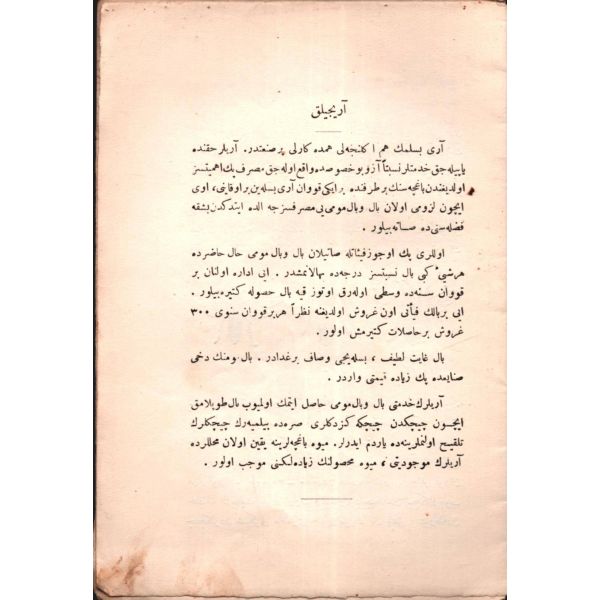 آریجیلق
آری بسلمك هم اكلنجه‌لی همده كارلی بر صنعتدر. آریلر حقنده
یاپیله‌جق خدمتلر نسبتاً آز و بو خصوصده واقع اوله‌جق مصرف پك اهمیتسز
اولدیغندن باغچه‌سنك بر طرفنده بر ایكی قووان آری بسله‌ین بر اوفاینی، اوی
ایچون لزومی اولان بال و بال مومی‌یی مصرفسزجه الده ایتدكدن بشقه
فضله‌سنی‌ده صاته‌بیلور.
اوللری پك اوجوز فیئاتله صاتیلان بال و بال مومی حال حاضرده
هر شیء كبی بال نسبتسز درجه‌ده بهالانمشدر. ایی اداره اولنان بر
قووان سنه‌ده وسطی اوله‌رق اوتوز قیه بال حصوله كتیره‌بیلور.
ایی بر بالك فیأتی اون غروش اولدیغنه نظراً هر بر قووان سنوی ٣٠٠
غروش بر حاصلات كتیرمش اولور.
بال غایت لطیف، بسله‌ییجی وصاف بر غدادر. بال ومنك دخی
صنایعده پك زیاده قیمتی واردر.
آریلرك خدمتی بال و بال مومی حاصل ایتمك اولمیوب بال طوپلامق
ایچون چیچكدن چیچكه كزدكلری صره‌ده بیلمیه‌رك چیچكلرك
تلقیح اولنملرینه‌ده یاردم ایدرلر. میوه باغچه‌لرینه یقین اولان محللرده
آریلرك موجودیتی، میوه محصولنك زیاده‌لكنی موجب اولور.